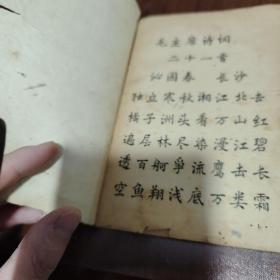 毛主席诗词
二十一首
沁园春 长沙
独立寒秋湘江北去
橘子洲头看万山红
遍层林尽染漫江碧
透百舸争流鹰击长
空鱼翔浅底万类霜